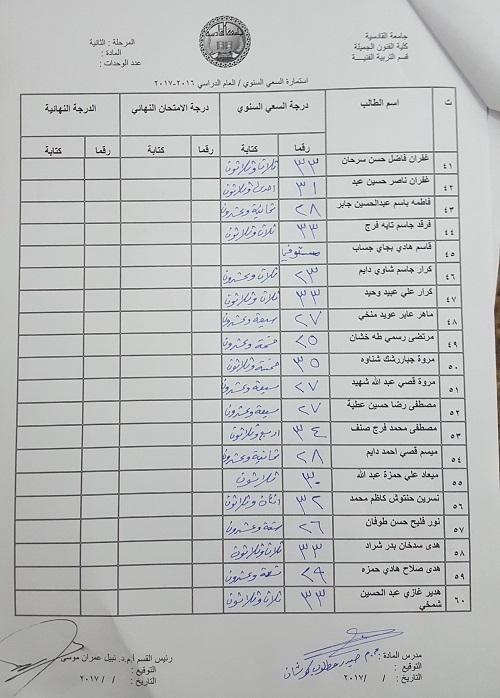 جامعة القادسية
كلية الفنون الجميلة
قسم التربية الفنية
المرحلة : الثانية
المادة :
عدد الوحدات :
استمارة السعي السنوي / العام الدراسي ٢٠١٦-٢٠١٧
ت اسم الطالب درجة السعي السنوي درجة الامتحان النهائي الدرجة النهائية
رقما كتابة رقما كتابة رقما كتابة
٤١ غفران فاضل حسن سرحان ٣٣ ثلاث وثلاثون
٤٢ غفران ناصر حسين عبد ٣١ احدى وثلاثون
٤٣ فاطمه باسم عبدالحسين جابر ٢٨ ثمانية وعشرون
٤٤ فرقد جاسم تايه فرج ٣٣ ثلاث وثلاثون
٤٥ قاسم هادي بجاي جساب
٤٦ كرار جاسم شاوي دايم ٢٣ ثلاث وعشرون
٤٧ كرار علي عبيد وحيد ٣٣ ثلاث وثلاثون
٤٨ ماهر عابر عويد منخي ٢٧ سبعة وعشرون
٤٩ مرتضى رسمي طه خشان ٢٥ خمسة وعشرون
٥٠ مروة جباررشك شناوه ٣٥ خمسة وثلاثون
٥١ مروة قصي عبد الله شهيد ٢٧ سبعة وعشرون
٥٢ مصطفى رضا حسين عطية ٢٧ سبعة وعشرون
٥٣ مصطفى محمد فرج صنف ٣٤ اربع وثلاثون
٥٤ ميسم قصي احمد دايم ٢٨ ثمانية وعشرون
٥٥ ميعاد علي حمزة عبد الله ٣٠ ثلاثون
٥٦ نسرين حنتوش كاظم محمد ٣٢ اثنان وثلاثون
٥٧ نور فليح حسن طوفان ٢٦ ستة وعشرون
٥٨ هدى سدخان بدر شراد ٣٣ ثلاث وثلاثون
٥٩ هدى صلاح هادي حمزه ٢٩ تسعة وعشرون
٦٠ هدير غازي عبد الحسين ٣٣ ثلاث وثلاثون
شمخي
مدرس المادة :
التوقيع :
التاريخ : / / ٢٠١٧
رئيس القسم أ.م.د. نبيل عمران موسى
التوقيع :
التاريخ : / / ٢٠١٧